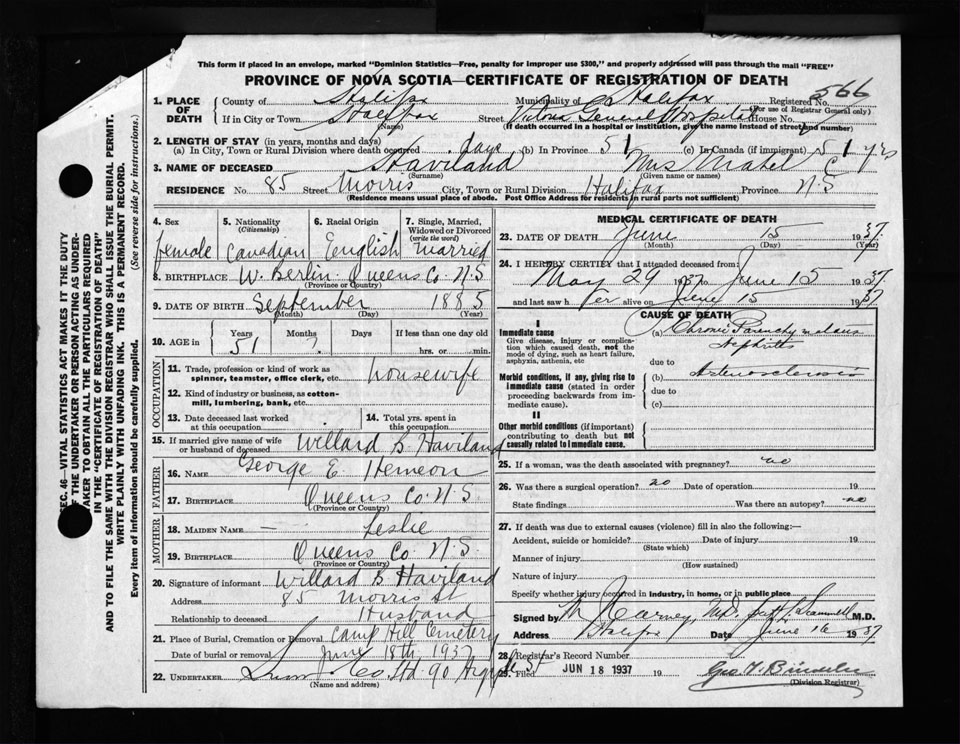 This form if placed in an envelope, marked "Dominion Statistics—Free, penalty for improper use $300," and properly addressed will pass through the mail "FREE"
PROVINCE OF NOVA SCOTIA—CERTIFICATE OF REGISTRATION OF DEATH
1. PLACE OF DEATH County of Halifax Municipality of Halifax Registered No. 566
(For use of Registrar General only)
If in City or Town Halifax Street Victoria General Hospital House No.
(Name) (If death occurred in a hospital or institution, give the name instead of street and number)
2. LENGTH OF STAY (in years, months and days)
(a) In City, Town or Rural Division where death occurred days (b) In Province 51 (c) In Canada (if immigrant) 51 yrs
3. NAME OF DECEASED Haviland Mrs Mabel C
(Surname) (Given name or names)
RESIDENCE No. 85 Street Morris City, Town or Rural Division Halifax Province N.S
(Residence means usual place of abode. Post Office Address for residents in rural parts not sufficient)
4. Sex female
5. Nationality (Citizenship) Canadian
6. Racial Origin English
7. Single, Married, Widowed or Divorced (write the word) married
8. BIRTHPLACE W. Berlin Queens Co N.S
(Province or Country)
9. DATE OF BIRTH September 1885
(Month) (Day) (Year)
10. AGE in Years Months Days If less than one day old
51 hrs. or min.
OCCUPATION
11. Trade, profession or kind of work as spinner, teamster, office clerk, etc. housewife
12. Kind of industry or business, as cotton-mill, lumbering, bank, etc.
13. Date deceased last worked at this occupation
14. Total yrs. spent in this occupation
15. If married give name of wife or husband of deceased Willard B. Haviland
FATHER
16. NAME George E Hemeon
17. BIRTHPLACE Queens Co. N.S.
(Province or Country)
MOTHER
18. MAIDEN NAME — Leslie
19. BIRTHPLACE Queens Co N.S.
(Province or Country)
20. Signature of informant Willard B Haviland
Address 85 Morris St
Relationship to deceased Husband
21. Place of Burial, Cremation or Removal Camp Hill Cemetery
Date of burial or removal June 18th, 1937
22. UNDERTAKER Snow & Co. Ltd. 90 Argyle St
(Name and address)
MEDICAL CERTIFICATE OF DEATH
23. DATE OF DEATH June 15 1937
(Month) (Day) (Year)
24. I HEREBY CERTIFY that I attended deceased from:
May 29 1937 to June 15 1937
and last saw her alive on June 15 1937
CAUSE OF DEATH
I
Immediate cause
Give disease, injury or complication which caused death, not the mode of dying, such as heart failure, asphyxia, asthenia, etc
(a) Chronic Parenchymatous Nephritis
due to
Morbid conditions, if any, giving rise to immediate cause (stated in order proceeding backwards from immediate cause).
(b) Arteriosclerosis
due to
(c)
II
Other morbid conditions (if important) contributing to death but not causally related to immediate cause.
25. If a woman, was the death associated with pregnancy? no
26. Was there a surgical operation? no Date of operation 19
State findings Was there an autopsy? no
27. If death was due to external causes (violence) fill in also the following:—
Accident, suicide or homicide? Date of injury 19
(State which)
Manner of injury
(How sustained)
Nature of injury
Specify whether injury occurred in industry, in home, or in public place
Signed by M.D.
Address Halifax Date June 16 1937
28. Registrar's Record Number
29. Filed JUN 18 1937 19
(Division Registrar)
SEC. 46—VITAL STATISTICS ACT MAKES IT THE DUTY
OF THE UNDERTAKER OR PERSON ACTING AS UNDER-
TAKER TO OBTAIN ALL THE PARTICULARS REQUIRED
IN THE "CERTIFICATE OF REGISTRATION OF DEATH"
AND TO FILE THE SAME WITH THE DIVISION REGISTRAR WHO SHALL ISSUE THE BURIAL PERMIT.
WRITE PLAINLY WITH UNFADING INK. THIS IS A PERMANENT RECORD.
Every item of information should be carefully supplied. (See reverse side for instructions.)